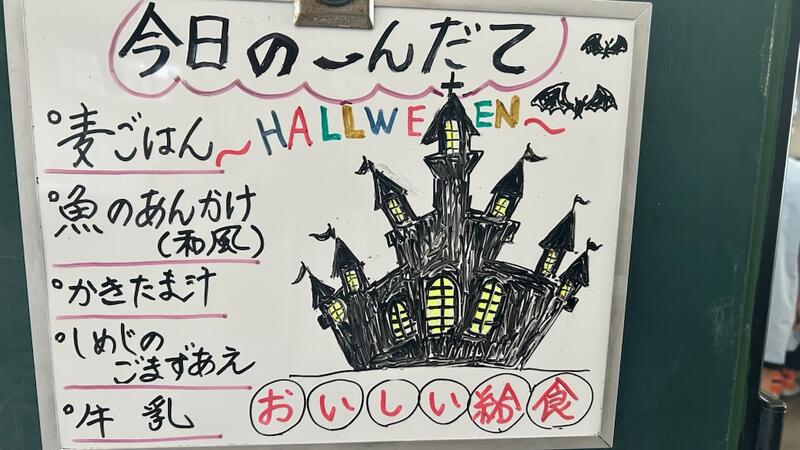 今日のこんだて
〜HALLWEEN〜
麦ごはん
魚のあんかけ
(和風)
かきたま汁
しめじの
ごまずあえ
牛乳
おいしい給食